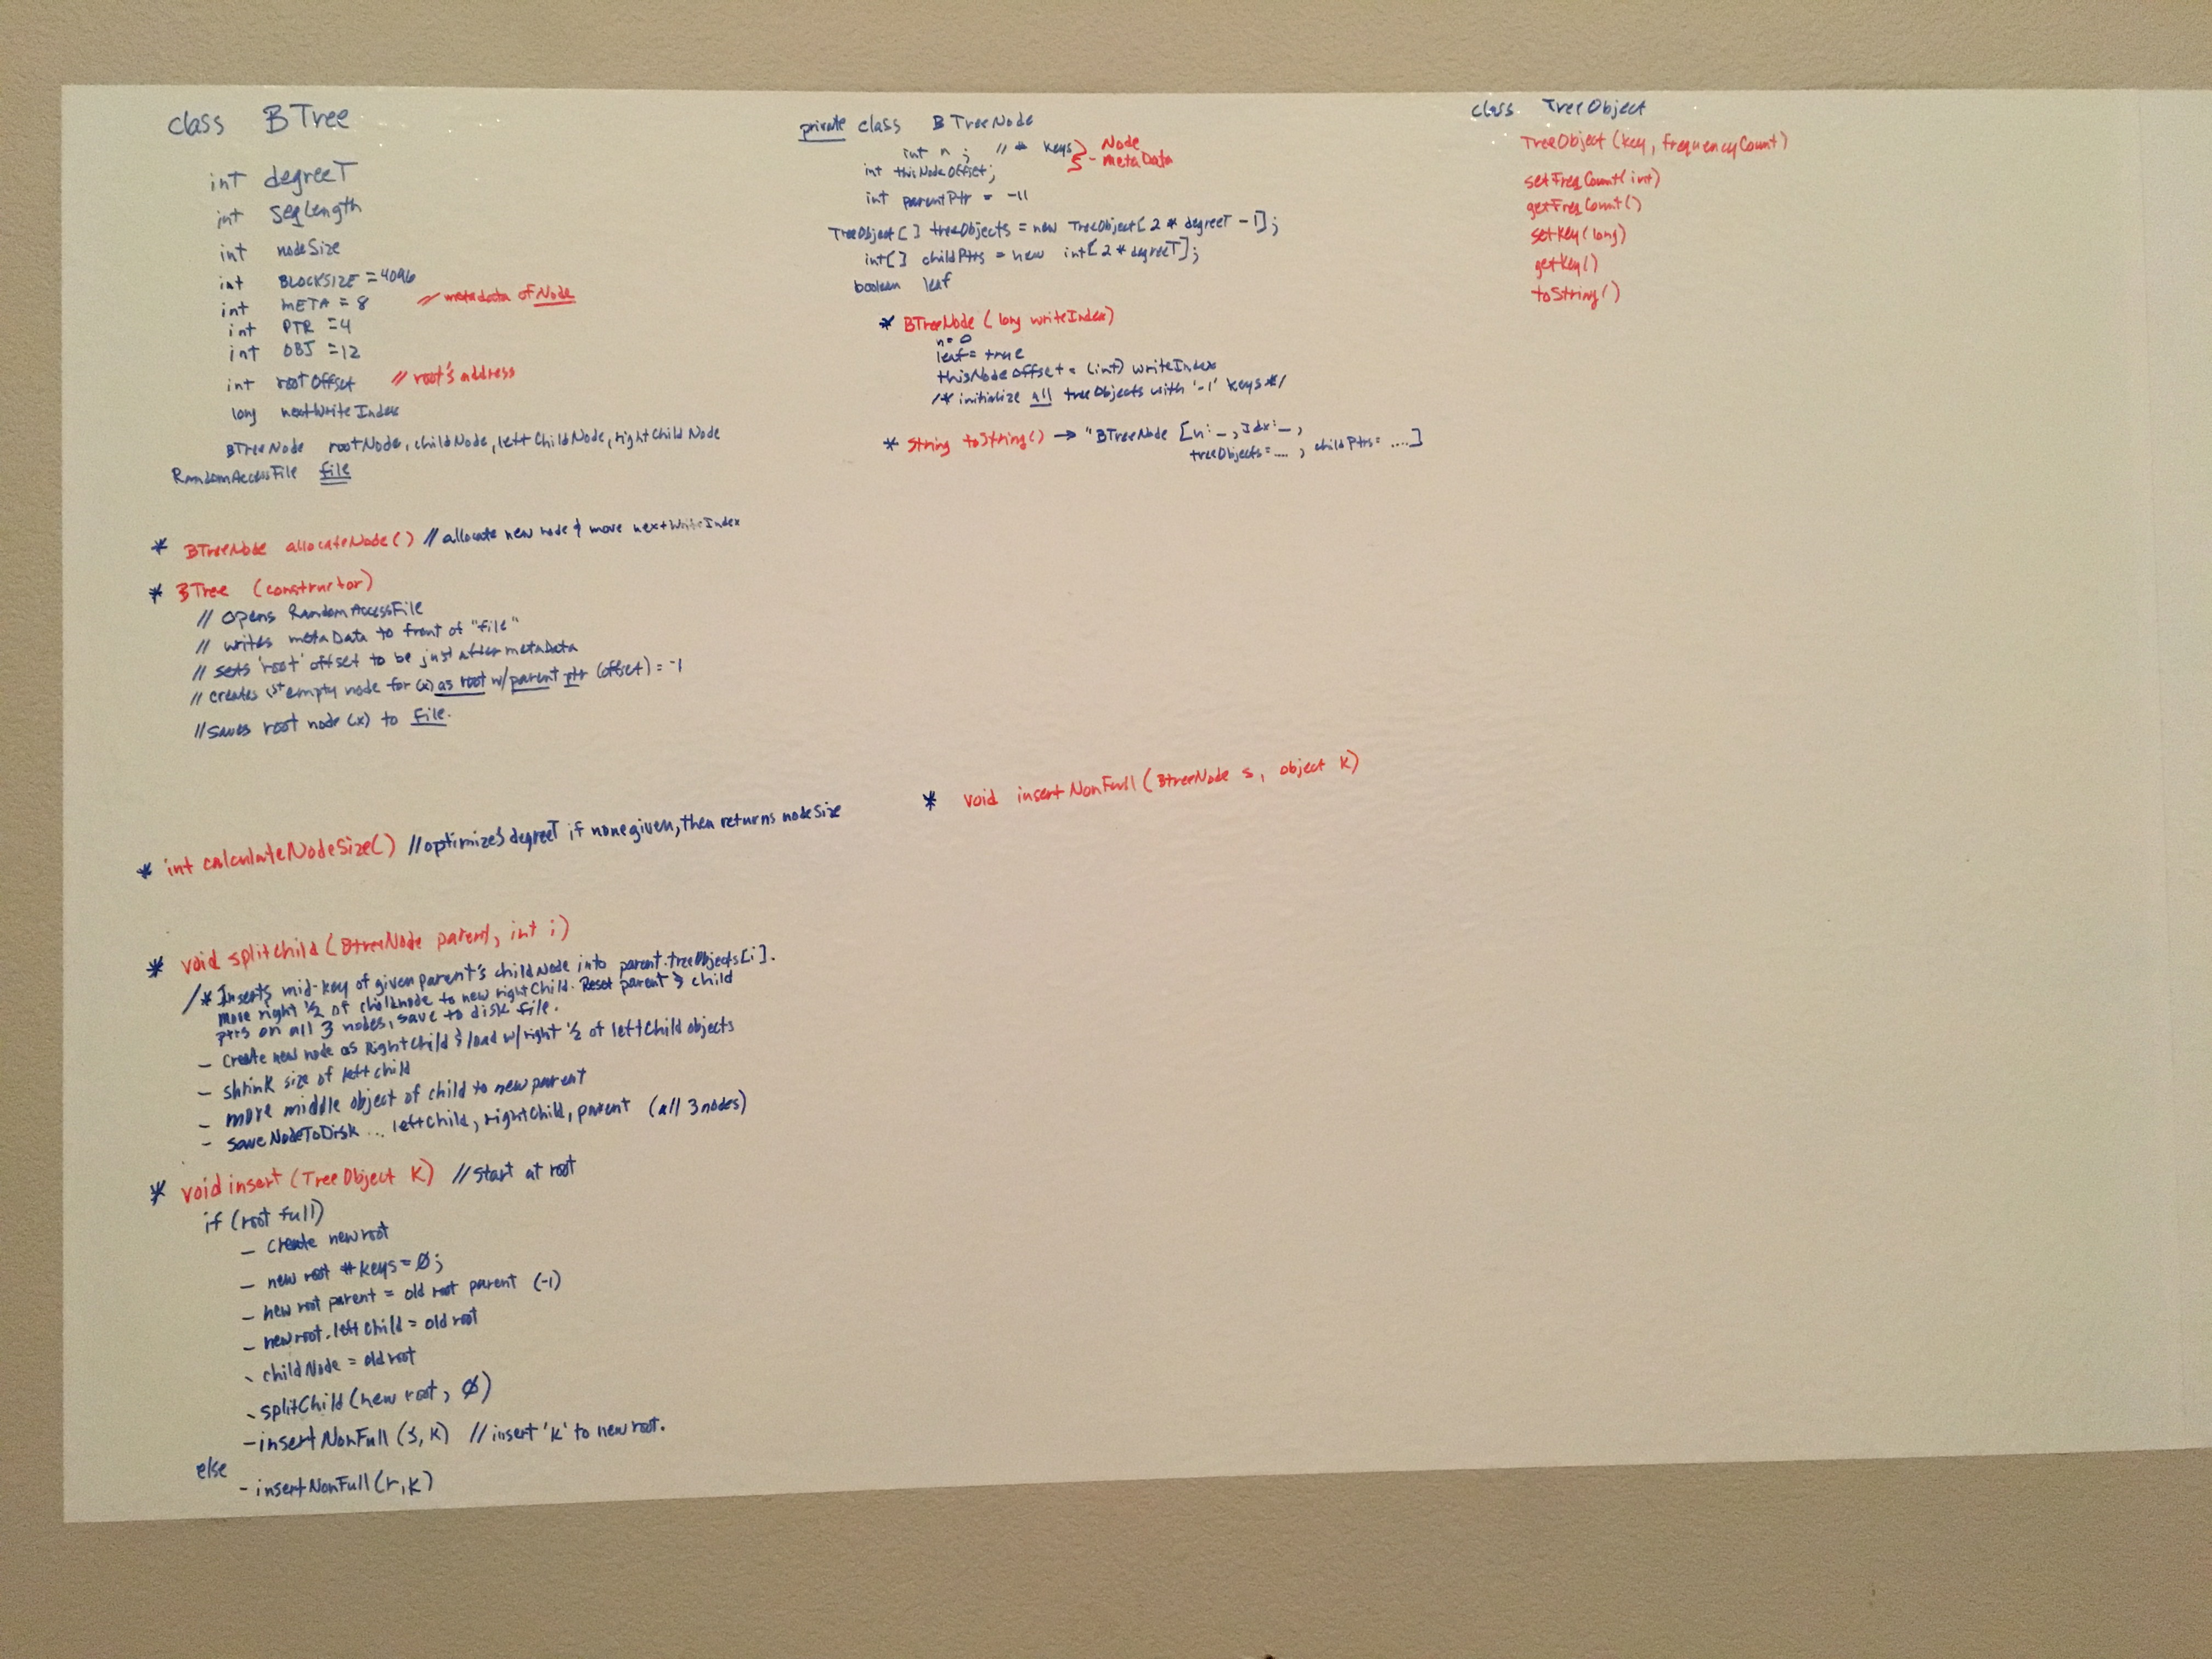 class BTree
int degreeT
int seqLength
int nodeSize
int BLOCKSIZE = 4096
int META = 8 // metadata of Node
int PTR = 4
int OBJ = 12
int rootOffset // root's address
long nextWriteIndex
BTreeNode rootNode, childNode, leftChildNode, rightChildNode
RandomAccessFile file
* BTreeNode allocateNode() // allocate new node & move nextWriteIndex
* BTree (constructor)
// opens RandomAccessFile
// writes metaData to front of "file"
// sets 'root' offset to be just after metaData
// creates 1st empty node for (x) as root w/ parent ptr (offset) = -1
// saves root node (x) to file.
* int calculateNodeSize() // optimizes degreeT if none given, then returns nodeSize
* void splitChild (BtreeNode parent, int i)
/* Inserts mid-key of given parent's childNode into parent.treeObjects[i].
move right 1/2 of childnode to new rightChild. Reset parent & child
ptrs on all 3 nodes, save to disk file.
- create new node as RightChild & load w/ right 1/2 of leftChild objects
- shrink size of left child
- move middle object of child to new parent
- saveNodeToDisk ... leftChild, rightChild, parent (all 3 nodes)
* void insert (TreeObject K) // Start at root
if (root full)
- create new root
- new root # keys = Ø;
- new root parent = old root parent (-1)
- newroot.leftChild = old root
- childNode = old root
- splitChild (new root, Ø)
- insertNonFull (s, k) // insert 'k' to new root.
else
- insertNonFull (r, k)
private class BTreeNode
int n ; // # keys } Node
int thisNodeOffset; - metaData
int parentPtr = -1
TreeObject[] treeObjects = new TreeObject[2 * degreeT - 1];
int[] childPtrs = new int[2 * degreeT];
boolean leaf
* BTreeNode (long writeIndex)
n = 0
leaf = true
thisNodeOffset = (int) writeIndex
/* initialize all treeObjects with '-1' keys */
* String toString() → "BTreeNode [n: _, Idx: _,
treeObjects= ...., childPtrs= ....]
* void insertNonFull (BtreeNode s, object K)
class TreeObject
TreeObject (key, frequencyCount)
setFreqCount(int)
getFreqCount()
setKey(long)
getKey()
toString()